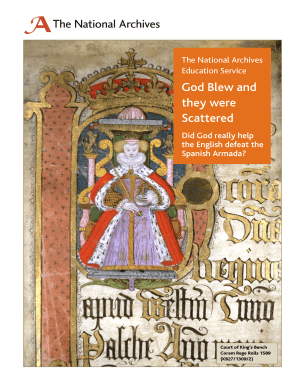 The National Archives
The National Archives
Education Service
God Blew and
they were
Scattered
Did God really help
the English defeat the
Spanish Armada?
Court of King's Bench
Coram Rege Rolls 1589
(KB27/1309/2)